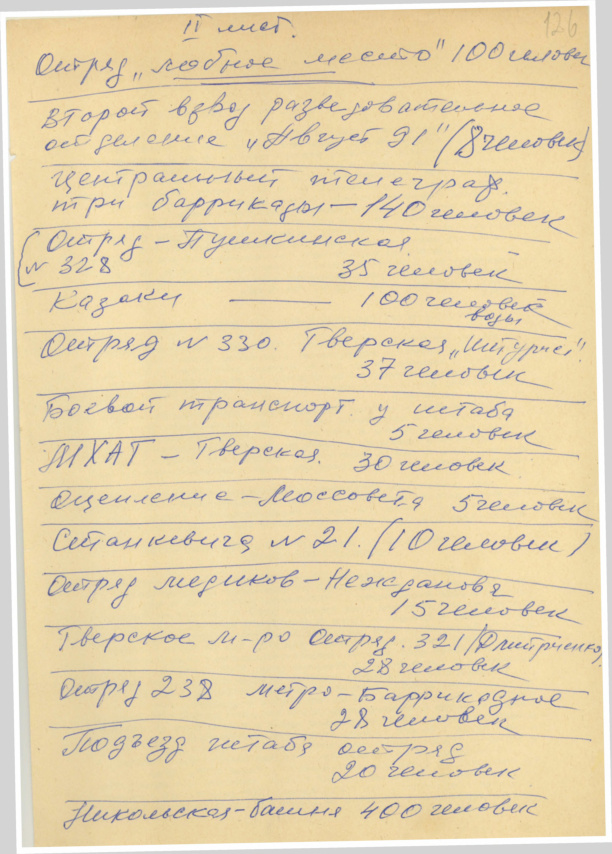 II лист.
126
Отряд „лобное место" 100 человек
Второй взвод разведовательное
отделение „Август 91" (8 человек)
Центральный телеграф.
три баррикады – 140 человек
Отряд – Пушкинская
N 328 35 человек
Казаки — 100 человек
воды
Отряд N 330. Тверская
37 человек
Боевой транспорт у штаба
5 человек
МХАТ – Тверская. 30 человек
Оцепление – Моссовета 5 человек
Станкевича N 21. (10 человек)
Отряд медиков – Нежданова
15 человек
Тверское м-ро Отряд. 321 (Дмитриченко)
28 человек
Отряд 238 метро – Баррикадное
28 человек
Подъезд штаба отряд
20 человек
Никольская – башня 400 человек